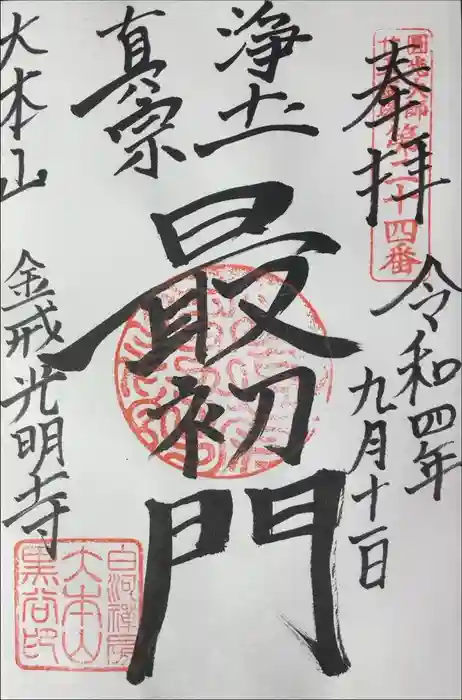 奉拝
圓光大師
第二十四番
令和四年
九月十一日
浄土
真宗
最初門
大本山
金戒光明寺
白河禪房
大本山
黒谷印